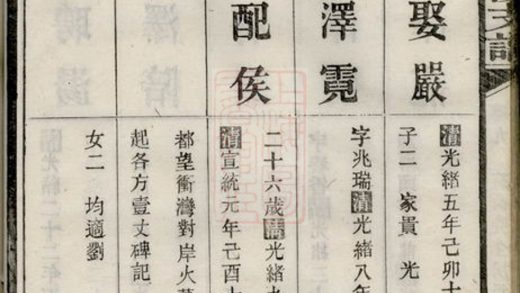 支譜
娶嚴
清光緒五年己卯十
子二 家貴 光
澤霓
字兆瑞清光緒八年
配侯
二十六歲清光緒九
清宣統元年己酉
都望衝灣對岸火
起各方壹丈碑記
女二 均適劉